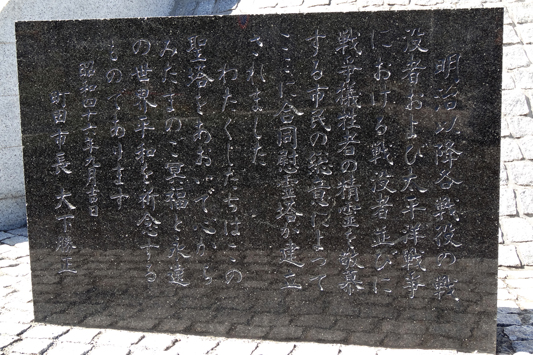 明治以降各戦役の戦
没者および太平洋戦争
における戦没者並びに
戦争犠牲者の精霊を敬慕
する市民の総意によって
ここに合同慰霊塔が竣工
されました
わたくしたちはこの
聖塔をあおいでこれら
みたまのご冥福と永遠
の世界平和を祈念する
ものであります
昭和四十一年九月 日
町田市長 大下勝正